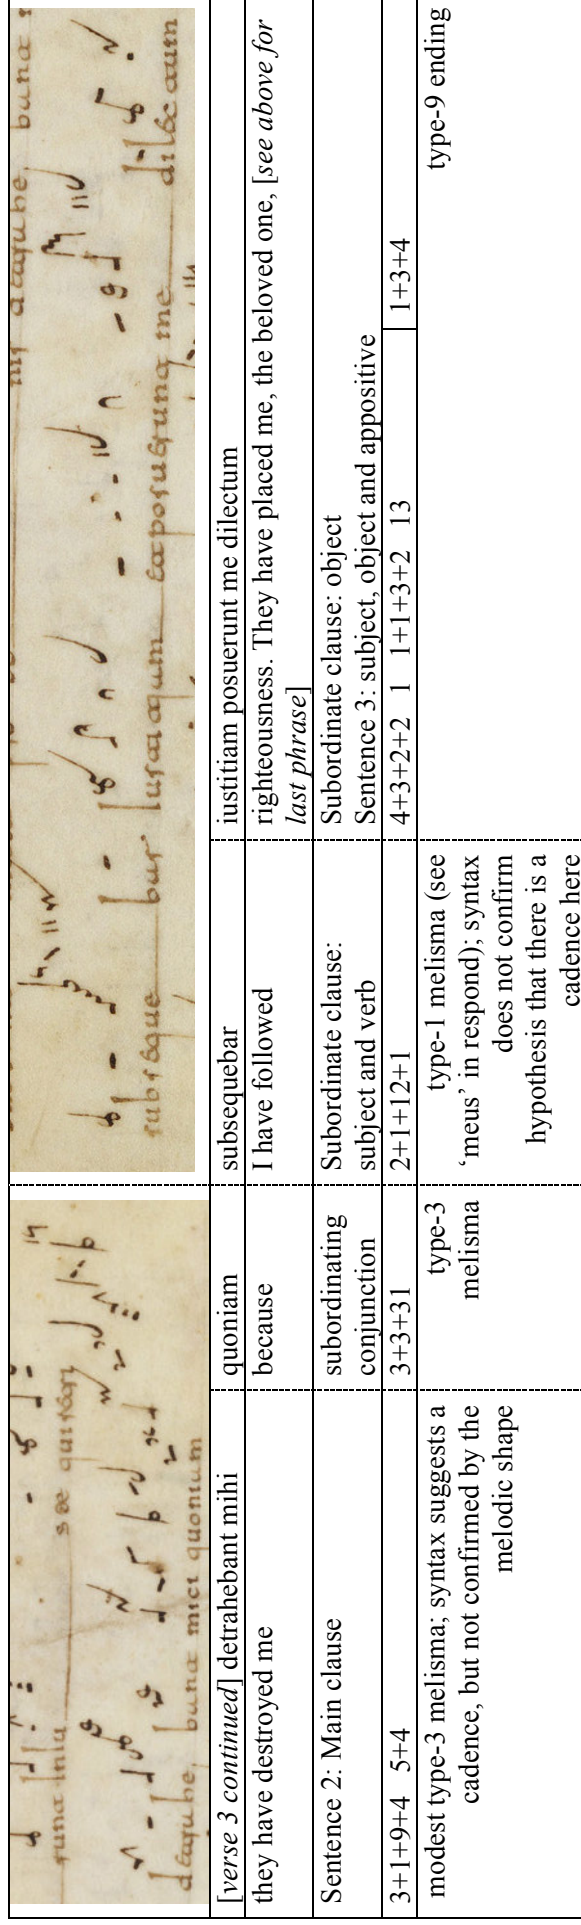 detrahe bant mici quoniam
subseque bar iustitiam et posuerunt me dilectum
[verse 3 continued] detrahebant mihi
quoniam
subsequebar
iustitiam posuerunt me dilectum
they have destroyed me
because
I have followed
righteousness. They have placed me, the beloved one, [see above for
last phrase]
Sentence 2: Main clause
subordinating
conjunction
Subordinate clause:
subject and verb
Subordinate clause: object
Sentence 3: subject, object and appositive
3+1+9+4 5+4
3+3+31
2+1+12+1
4+3+2+2 1 1+1+3+2 13
1+3+4
modest type-3 melisma; syntax suggests a
cadence, but not confirmed by the
melodic shape
type-3
melisma
type-1 melisma (see
‘meus’ in respond); syntax
does not confirm
hypothesis that there is a
cadence here
type-9 ending